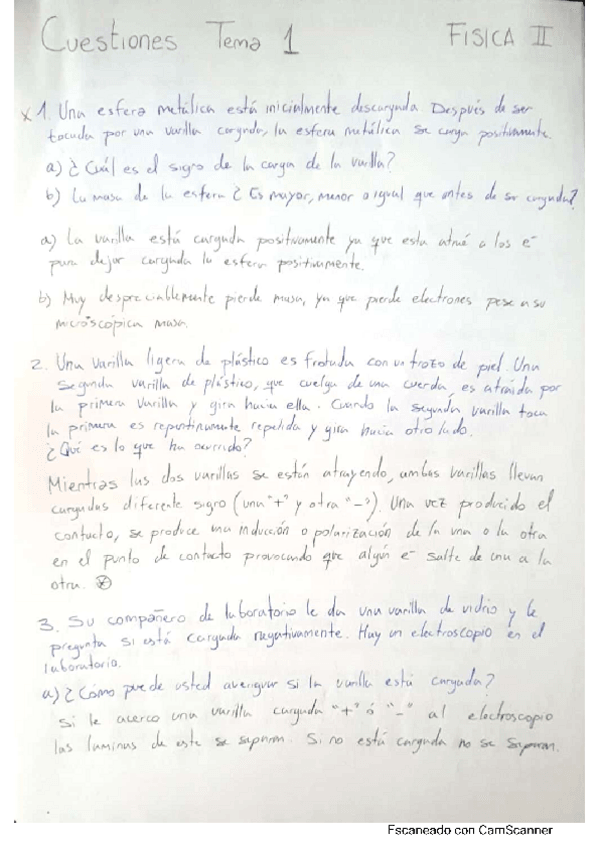 Cuestiones Tema 1 FISICA II
x 1. Una esfera metálica está inicialmente descargada Después de ser
tocada por una varilla cargada, la esfera metálica se carga positivamente.
a) ¿Cuál es el signo de la carga de la varilla?
b) La masa de la esfera ¿Es mayor, menor o igual que antes de ser cargada?
a) La varilla está cargada positivamente ya que esta atrae a los e-
para dejar cargada la esfera positivamente.
b) Muy despreciablemente pierde masa, ya que pierde electrones pese a su
microscópica masa.
2. Una varilla ligera de plástico es frotada con un trozo de piel. Una
segunda varilla de plástico, que cuelga de una cuerda, es atraída por
la primera varilla y gira hacia ella. Cuando la segunda varilla toca
la primera es repentinamente repelida y gira hacia otro lado.
¿Qué es lo que ha ocurrido?
Mientras las dos varillas se están atrayendo, ambas varillas llevan
cargadas diferente signo (una "+" y otra "-"). Una vez producido el
contacto, se produce una inducción o polarización de la una o la otra
en el punto de contacto provocando que algún e- salte de una a la
otra.
3. Su compañero de laboratorio le da una varilla de vidrio y le
pregunta si está cargada negativamente. Hay un electroscopio en el
laboratorio.
a) ¿Cómo puede usted averiguar si la varilla está cargada?
Si le acerco una varilla cargada "+" ó "-" al electroscopio
las laminas de este se separan. Si no está cargada no se separan.
Escaneado con CamScanner